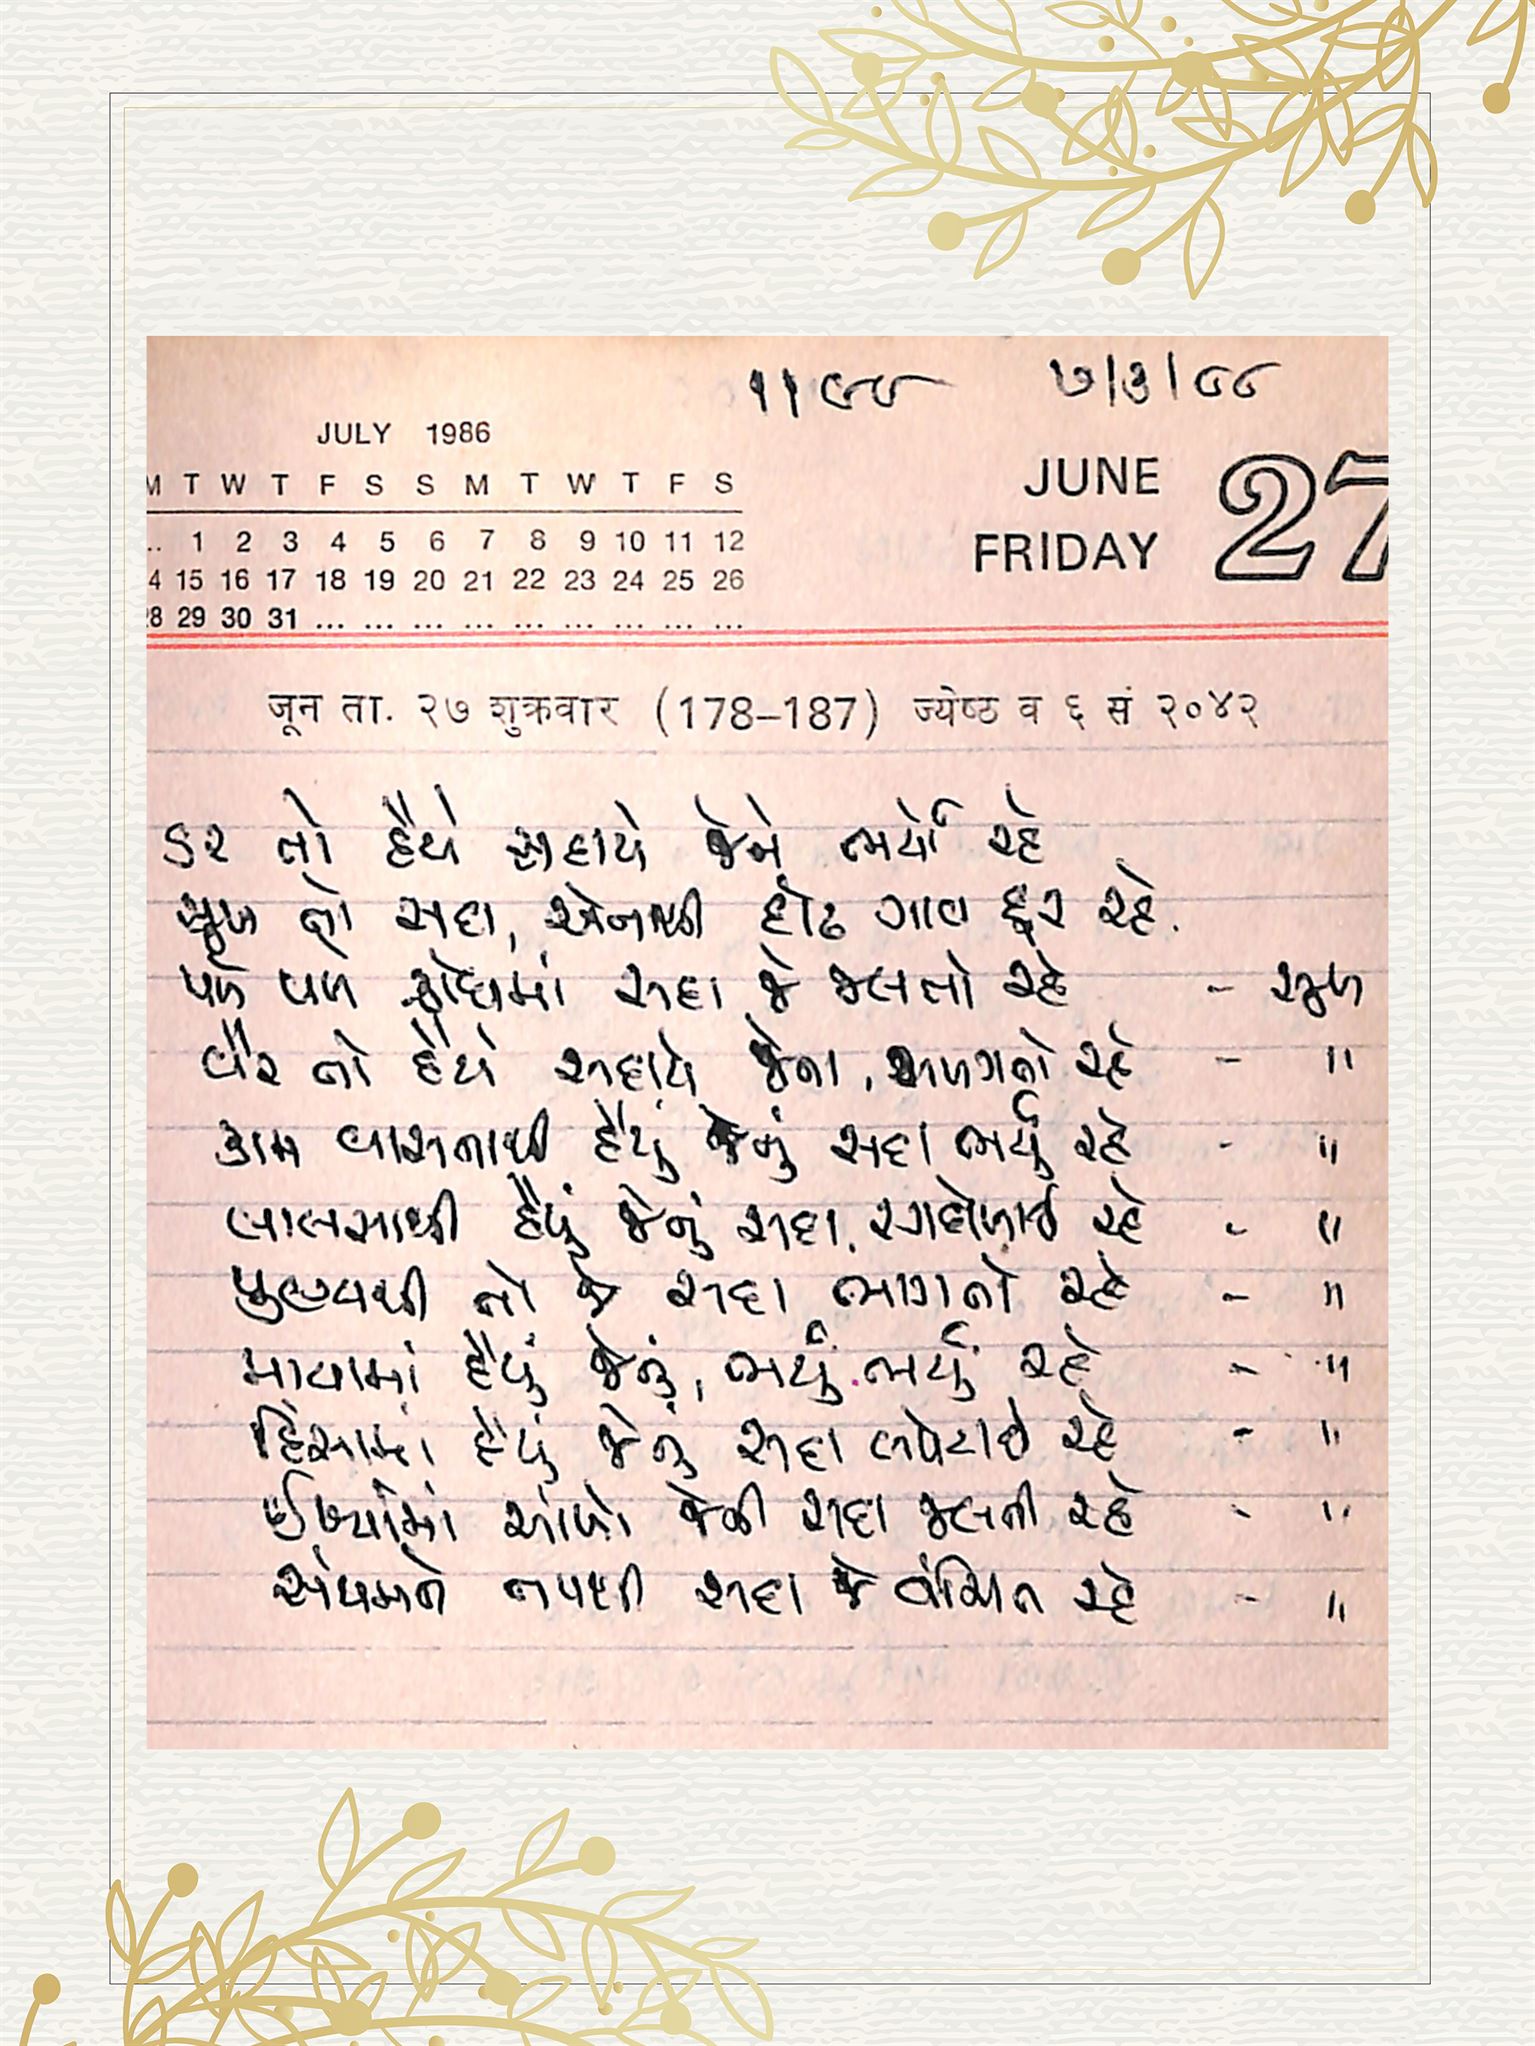 ૧૧૯૮ ૭/૩/૮૮
JULY 1986
M T W T F S S M T W T F S
.. 1 2 3 4 5 6 7 8 9 10 11 12
4 15 16 17 18 19 20 21 22 23 24 25 26
28 29 30 31 ... ... ... ... ... ... ... ... ...
JUNE
FRIDAY 27
जून ता. २७ शुक्रवार (178–187) ज्येष्ठ व ६ सं २०४२
ડર તો હૈયે સદાયે જેને ભર્યો રહે
સુખ તો સદા, એનાથી દૂર રહે.
પળે પળે ક્રોધમાં સદા જે જલતો રહે - સુખ
વૈર તો હૈયે સદાયે જેના, સળગતો રહે - "
કામ વાસનાથી હૈયું જેનું સદા ભર્યું રહે - "
લાલસાથી હૈયું જેનું સદા, રગદોળાઈ રહે - "
પુણ્યથી તો જે સદા ભાગતો રહે - "
માયામાં હૈયું જેનું, ભર્યું ભર્યું રહે - "
હિંસામાં હૈયું જેનું સદા લપેટાઈ રહે - "
ઈર્ષ્યામાં આંખો જેની સદા જલતી રહે - "
સંયમને તપથી સદા જે વંચિત રહે - "